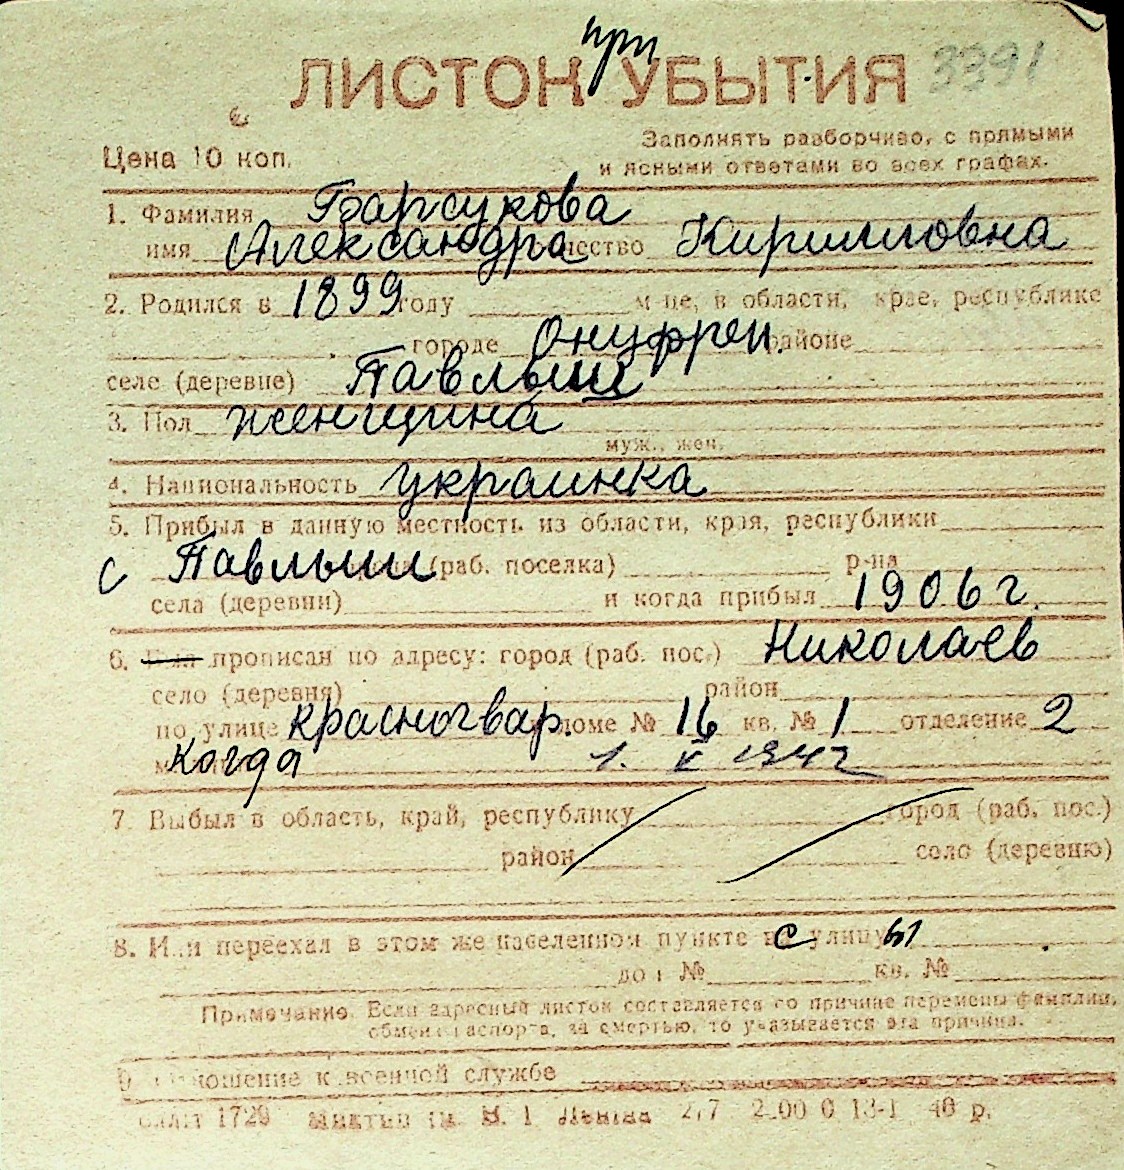 при
ЛИСТОК УБЫТИЯ 3391
Цена 10 коп.
Заполнять разборчиво, с прямыми
и ясными ответами во всех графах.
1. Фамилия Барсукова
имя Александра отчество Кирилловна
2. Родился в 1899 году м-це, в области, крае, республике
городе Онуфреи. районе
селе (деревне) Павлыш
3. Пол женщина
муж., жен.
4. Национальность украинка
5. Прибыл в данную местность из области, края, республики
с Павлыш (раб. поселка) р-на
села (деревни) и когда прибыл 1906 г.
6. прописан по адресу: город (раб. пос.) Николаев
село (деревня) район
по улице красногвар. доме № 16 кв. № 1 отделение 2
когда 1. V 194 г
7. Выбыл в область, край, республику город (раб. пос.)
район село (деревню)
8. Или переехал в этом же населенном пункте с улицы
дом № кв. №
Примечание. Если адресный листок составляется по причине перемены фамилии,
обмена паспорта, за смертью, то указывается эта причина.
9. Отношение к военной службе
1729 им. В. И. Ленина